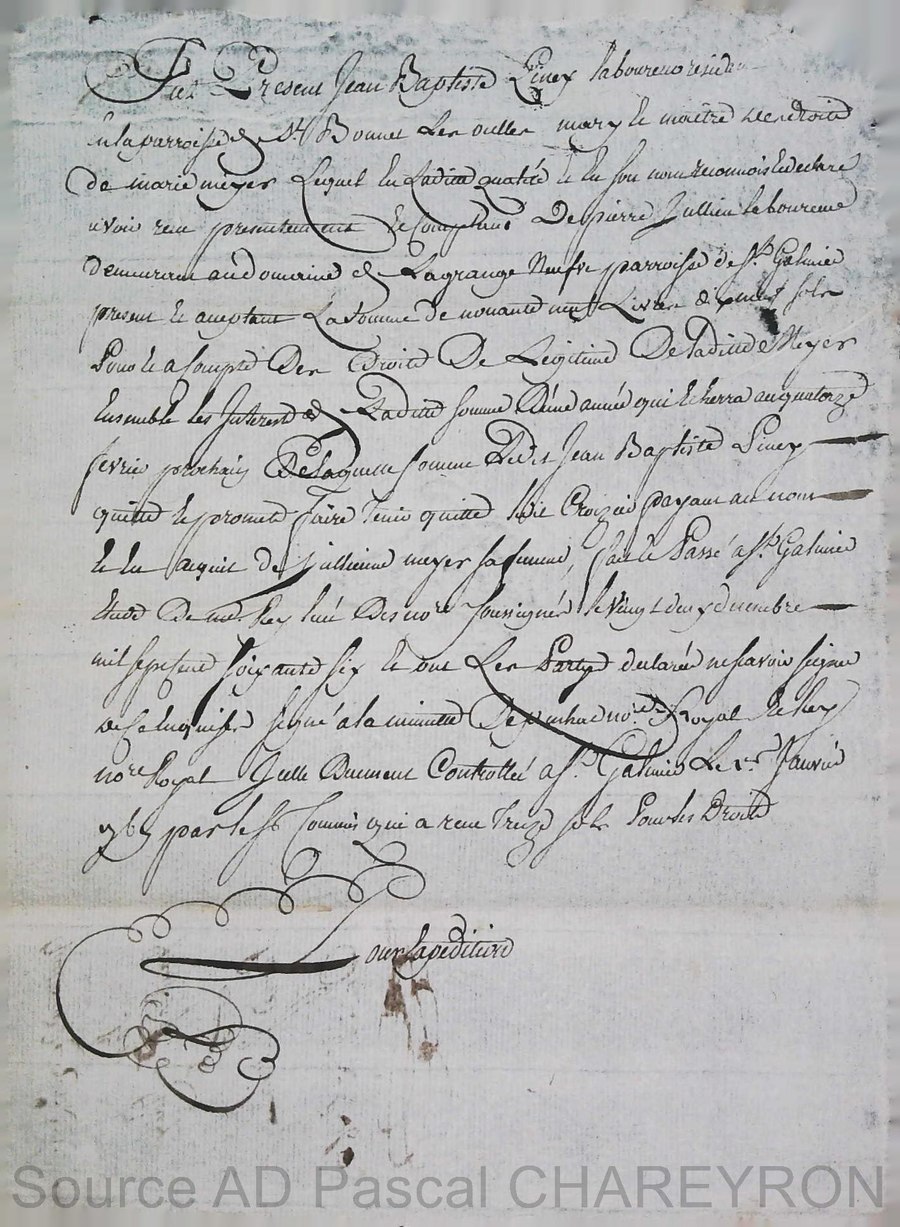 Fut Present Jean Baptiste Piney laboureur residant
en la parroisse de St Bonnet Les oulles mary et maitre des droits
de marie meyer Lequel en Ladite qualité et en son nom reconnois et declare
avoir reçu presentement et Comptant De pierre Jullien laboureur
demeurant au domaine de Lagrange Neufve parroisse de St Galmier
present et aceptant La somme de nonante neuf Livres dix neuf sols
Pour et a Compte Des Droits De Legitime De Laditte Meyer
Ensemble les Interest de Laditte somme Dune année qui echerra au quatorze
fevrier prochain De laquelle somme Ledit Jean Baptiste Piney
quitte et promet faire tenir quitte payant au nom
et en aquit de Jullienne meyer sa femme, fait et Passé a St Galmier
Etude De me Rey lun Des nores soussignés le vingt deux decembre
mil sept cent soixante six et ont Les Partyes declarées ne scavoir signer
de ce enquises signé a la minutte nore Royal et Rey
nore Royal Icelle Duement Controllée a St Galmier Le 1er Janvier
1767 par le Sr Commis qui a reçu treize sols Pour les Droits
Pour Lexpeditions
Source AD Pascal CHAREYRON